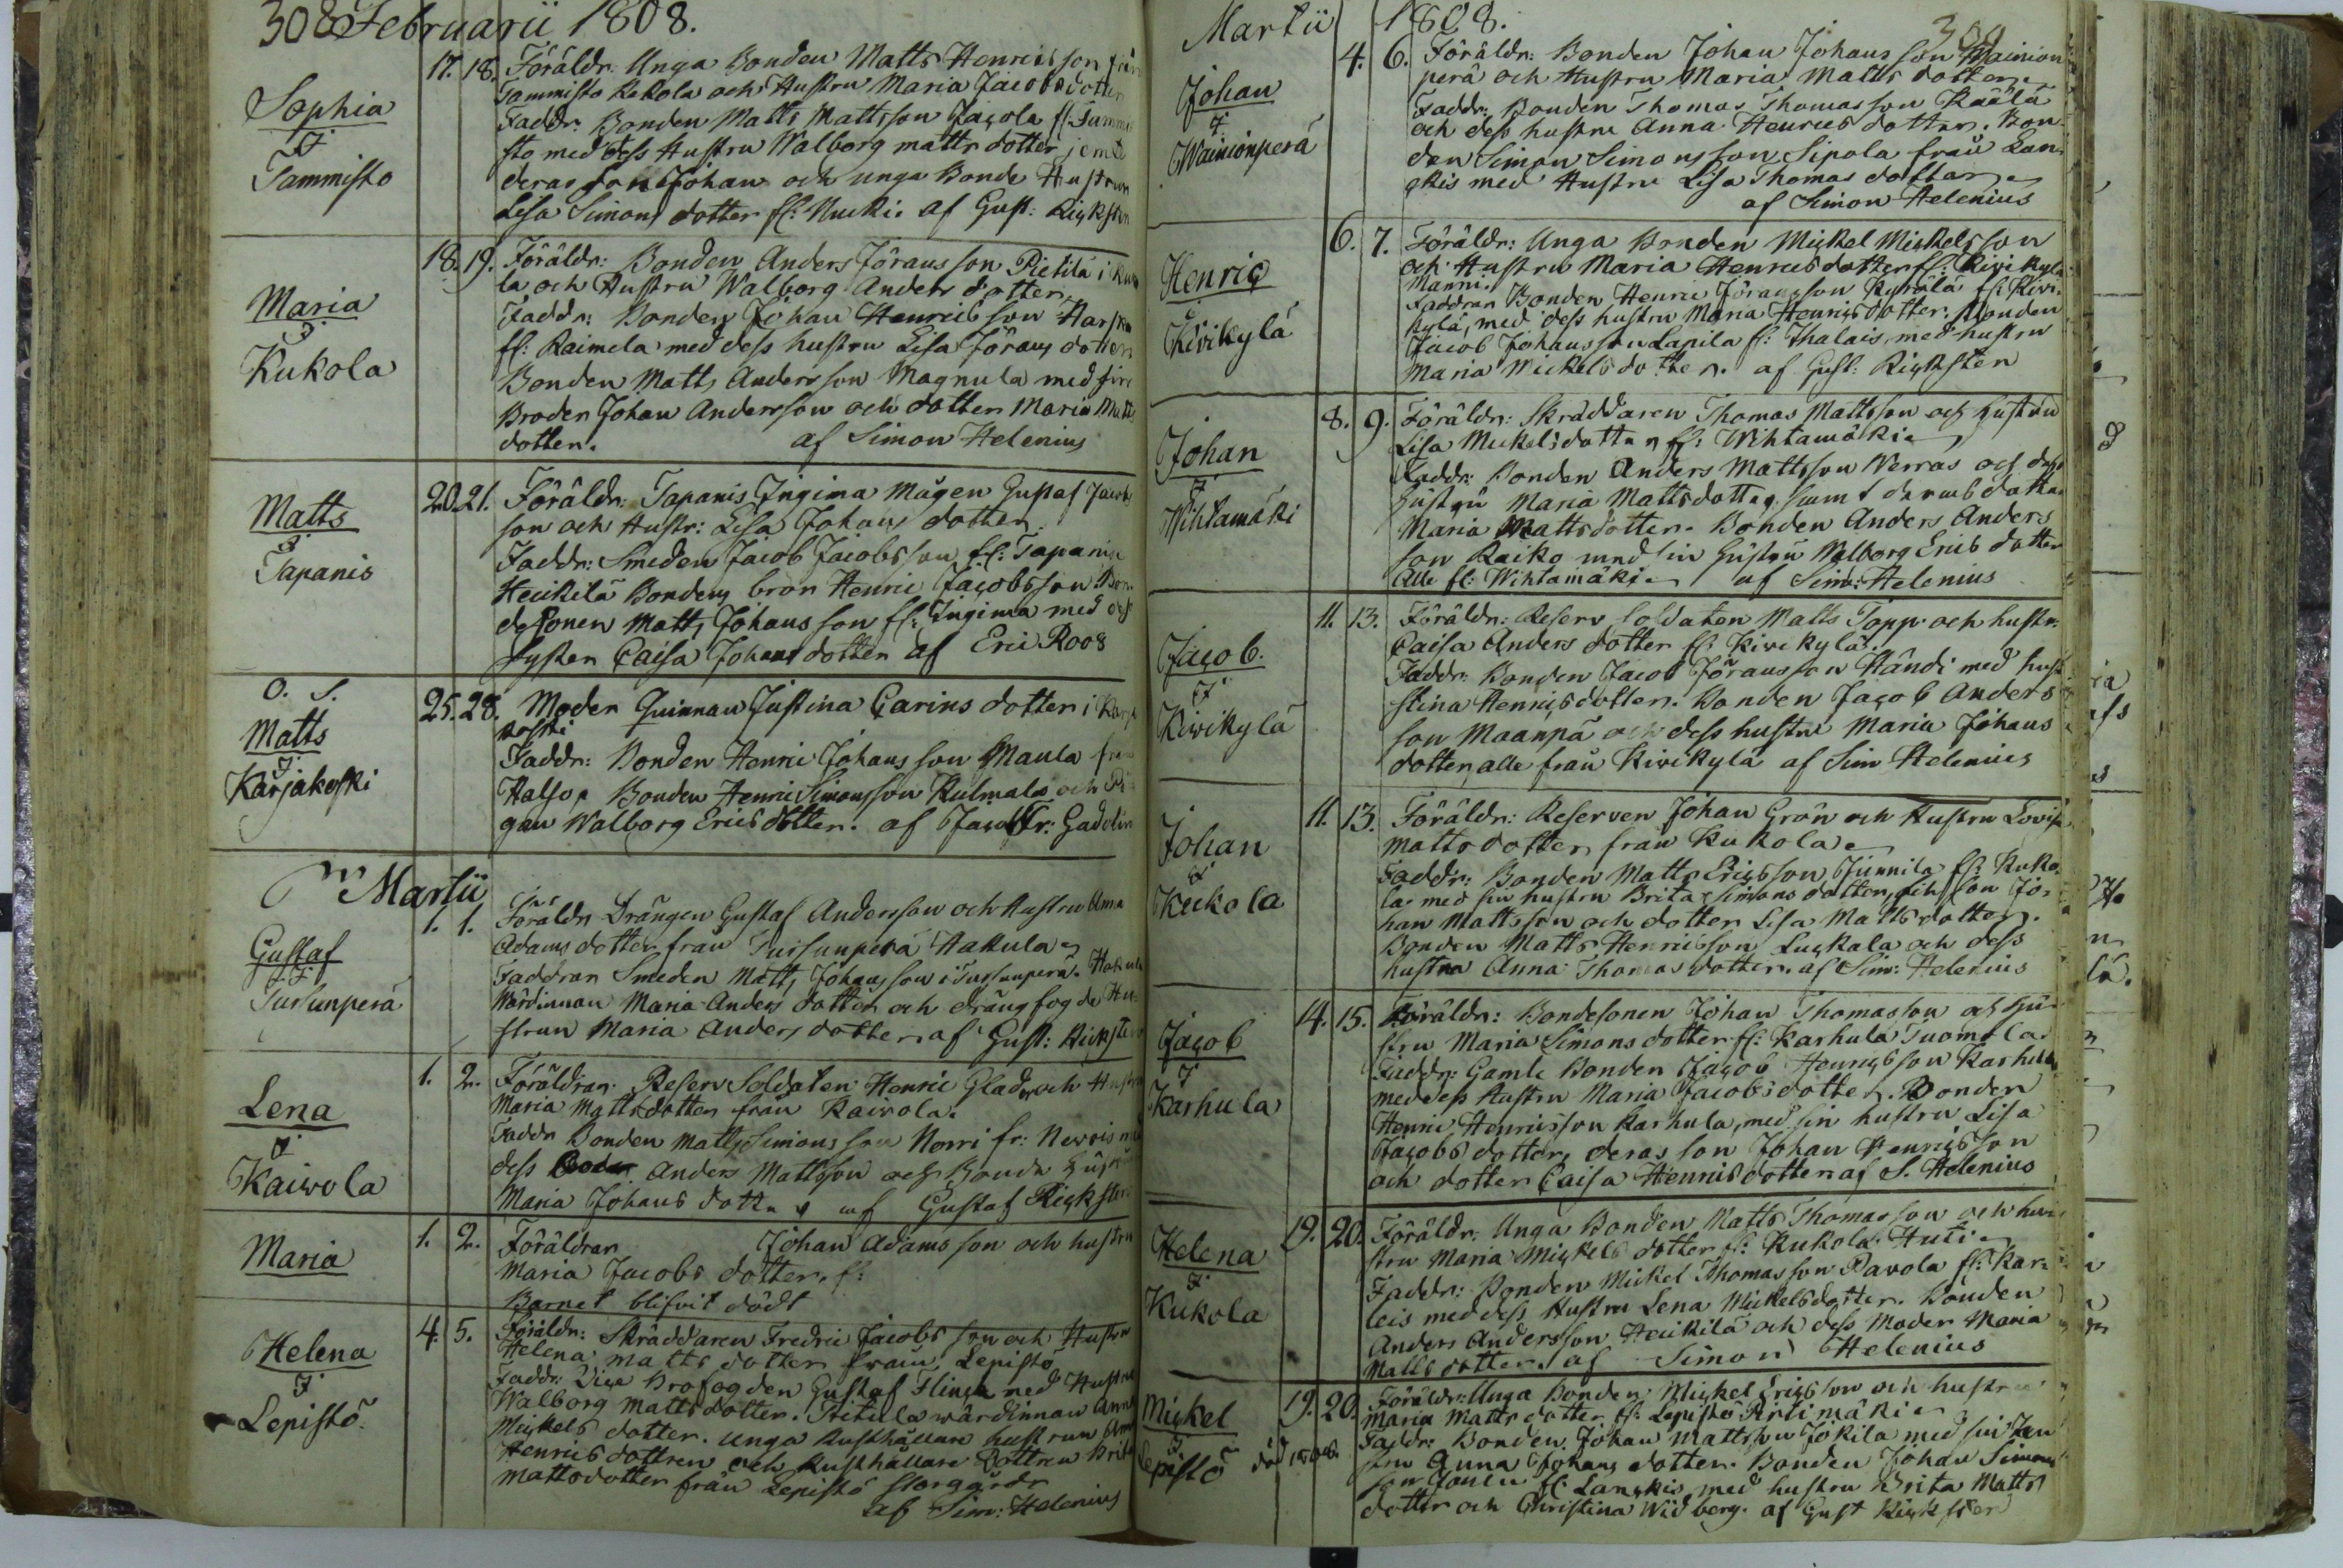 308 Februarii 1808.
Sophia
F
Tammisto
17. 18. Föräldr. Unga Bonden Matts Henricsson från
Tammisto Kekola och Hustru Maria Jacobsdotter
Faddr. Bonden Matts Mattsson Jacola fr: Tammi
sto med dess Hustru Walborg Matts dotter jemte
deras son Johan och unga Bonde Hustrun
Lisa Simons dotter fr: af Gust: Rickstén
Maria
F.
Kukola
18. 19. Föräldr: Bonden Anders Jöransson Pietilä i Kuko
la och Hustru Walborg Anders dotter.
Faddr: Bonden Johan Henricsson
fr: Raimela med dess hustru Lisa Jörans dotter
Bonden Matts Andersson Magnula med
Broder Johan Andersson och dotter Maria Matts
dotter. af Simon Helenius
Matts
F.
Tapanis
20. 21. Föräldr: Tapanis Ingima Mågen Gustaf Jacobs
son och Hustr: Lisa Johans dotter.
Faddr: Smeden Jacob Jacobsson fr: Tapanis
Heikilä Bondens bror Henric Jacobsson Bon
desonen Matts Johansson fr: Ingima med dess
syster Caisa Johans dotter af Eric Roos
O. S.
Matts
F.
Karjakoski
25. 28. Moder Quinnan Justina Carins dotter i Karja
koski
Faddr: Bonden Henric Johansson Maula från
Halso, Bonden Henric Simonsson Kulmala och Pi
gan Walborg Ericsdotter. af Jacob Fr: Gadolin
Martii
Gustaf
F.
Tursunperä
1. 1. Föräldr Drängen Gustaf Andersson och Hustru Anna
Adams dotter från Tursunperä Hakula
Faddrar Smeden Matts Johansson i Tursunperä. Hakula
Wärdinnan Maria Anders dotter och drängfogde Hu
strun Maria Anders dotter af Gust: Rickstén
Lena
F
Kaivola
1. 2. Föräldrar: Reserv Soldaten Henric Glader och Hustru
Maria Mattsdotter från Kaivola.
Faddr Bonden Matts Simonsson Norri fr: Nervis med
dess Anders Mattsson och Bonde Hustrun
Maria Johans dotter af Gustaf Rickstén
Maria
1. 2. Föräldrar Johan Adamsson och hustru
Maria Jacobs dotter fr:
Barnet blifvit dödt
Helena
F.
Lepistö
4. 5. Föräldr: Skräddaren Fredric Jacobsson och Hustru
Helena Matts dotter från Lepistö
Faddr: Vice Brofogden Gustaf Flinck med Hustru
Walborg Mattsdotter. wärdinnan Anna
Mickels dotter. Unga Rusthållare hustrun Anna
Henricsdotter och Rusthållare Dottren Brita
Mattsdotter från Lepistö Storgård
af Sim: Helenius
Martii 1808. 309
Johan
F
Wainionperä
4. 6. Föräldr: Bonden Johan Johansson Wainion
perä och Hustru Maria Matts dotter
Faddr: Bonden Thomas Thomasson Käälä
och dess hustru Anna Henrics dotter. Bon
den Simon Simonsson Sipola från Lan
kis med Hustru Lisa Thomas dotter
af Simon Helenius
Henric
F
Kivikylä
6. 7. Föräldr: Unga Bonden Mickel Mickelsson
och Hustru Maria Henricsdotter fr: Kivikylä
Manni.
Faddrar Bonden Henric Jöransson Kyrölä fr: Kivi
kylä, med dess hustru Maria Henricsdotter. Bonden
Jacob Johansson Lapila fr: Thalais, med hustru
Maria Mickelsdotter. af Gust: Rickstén
Johan
F
Wihtamäki
8. 9. Föräldr: Skräddaren Thomas Mattsson och Hustru
Lisa Mickelsdotter fr: Wihtamäki
Faddr: Bonden Anders Mattsson Werras och dess
hustru Maria Mattsdotter, samt deras dotter
Maria Mattsdotter. Bonden Anders Anders
son Raiko med sin Hustru Walborg Erics dotter
Alle fr: Wihtamäki af Sim: Helenius
Jacob.
F
Kivikylä
11. 13. Föräldr: Reserv Soldaten Matts Topp och hustr:
Caisa Anders dotter fr: Kivikylä.
Faddr: Bonden Jacob Jöransson Händi med hust
Stina Henricsdotter. Bonden Jacob Anders
son Maanpä och dess hustru Maria Johans
dotter, alle från Kivikylä af Sim Helenius
Johan
F
Kukola
11. 13. Föräldr: Reserven Johan Grön och Hustru Lovisa
Mattsdotter från Kukola
Faddr: Bonden Matts Ericsson Junnila fr: Kuko
la med sin hustru Brita Simons dotter, och son Jo
han Mattsson och dotter Lisa Mattsdotter.
Bonden Matts Henricsson Luckala och dess
hustru Anna Thomas dotter. af Sim: Helenius
Jacob
F
Karhula
14. 15. Föräldr: Bondesonen Johan Thomasson och Hu
stru Maria Simons dotter fr: Karhula Tuomola
Faddr: Gamle Bonden Jacob Henricsson Karhula
med dess Hustru Maria Jacobsdotter. Bonden
Henric Henricsson Karhula, med sin hustru Lisa
Jacobs dotter, deras son Johan Henricsson
och dotter Caisa Henricsdotter af S. Helenius
Helena
F.
Kukola
19. 20. Föräldr: Unga Bonden Matts Thomasson och hu
stru Maria Mickels dotter fr: Kukola Huti
Faddr: Bonden Mickel Thomasson Pavola fr: Kar
leis med dess Hustru Lena Mickelsdotter. Bonden
Anders Andersson Heikilä och dess Moder Maria
Mattsdotter. af Simon Helenius
Mickel
F
Lepistö
19. 20. Föräldr: Unga Bonden Mickel Ericsson och hustru
Maria Matts dotter fr: Lepistö Pirtimäki
Faddr: Bonden Johan Mattsson Jokila med sin Hu
stru Anna Johans dotter. Bonden Johan Simons
son fr: Lanckis med hustru Brita Matts
dotter och Christina Widberg. af Gust Rickstén